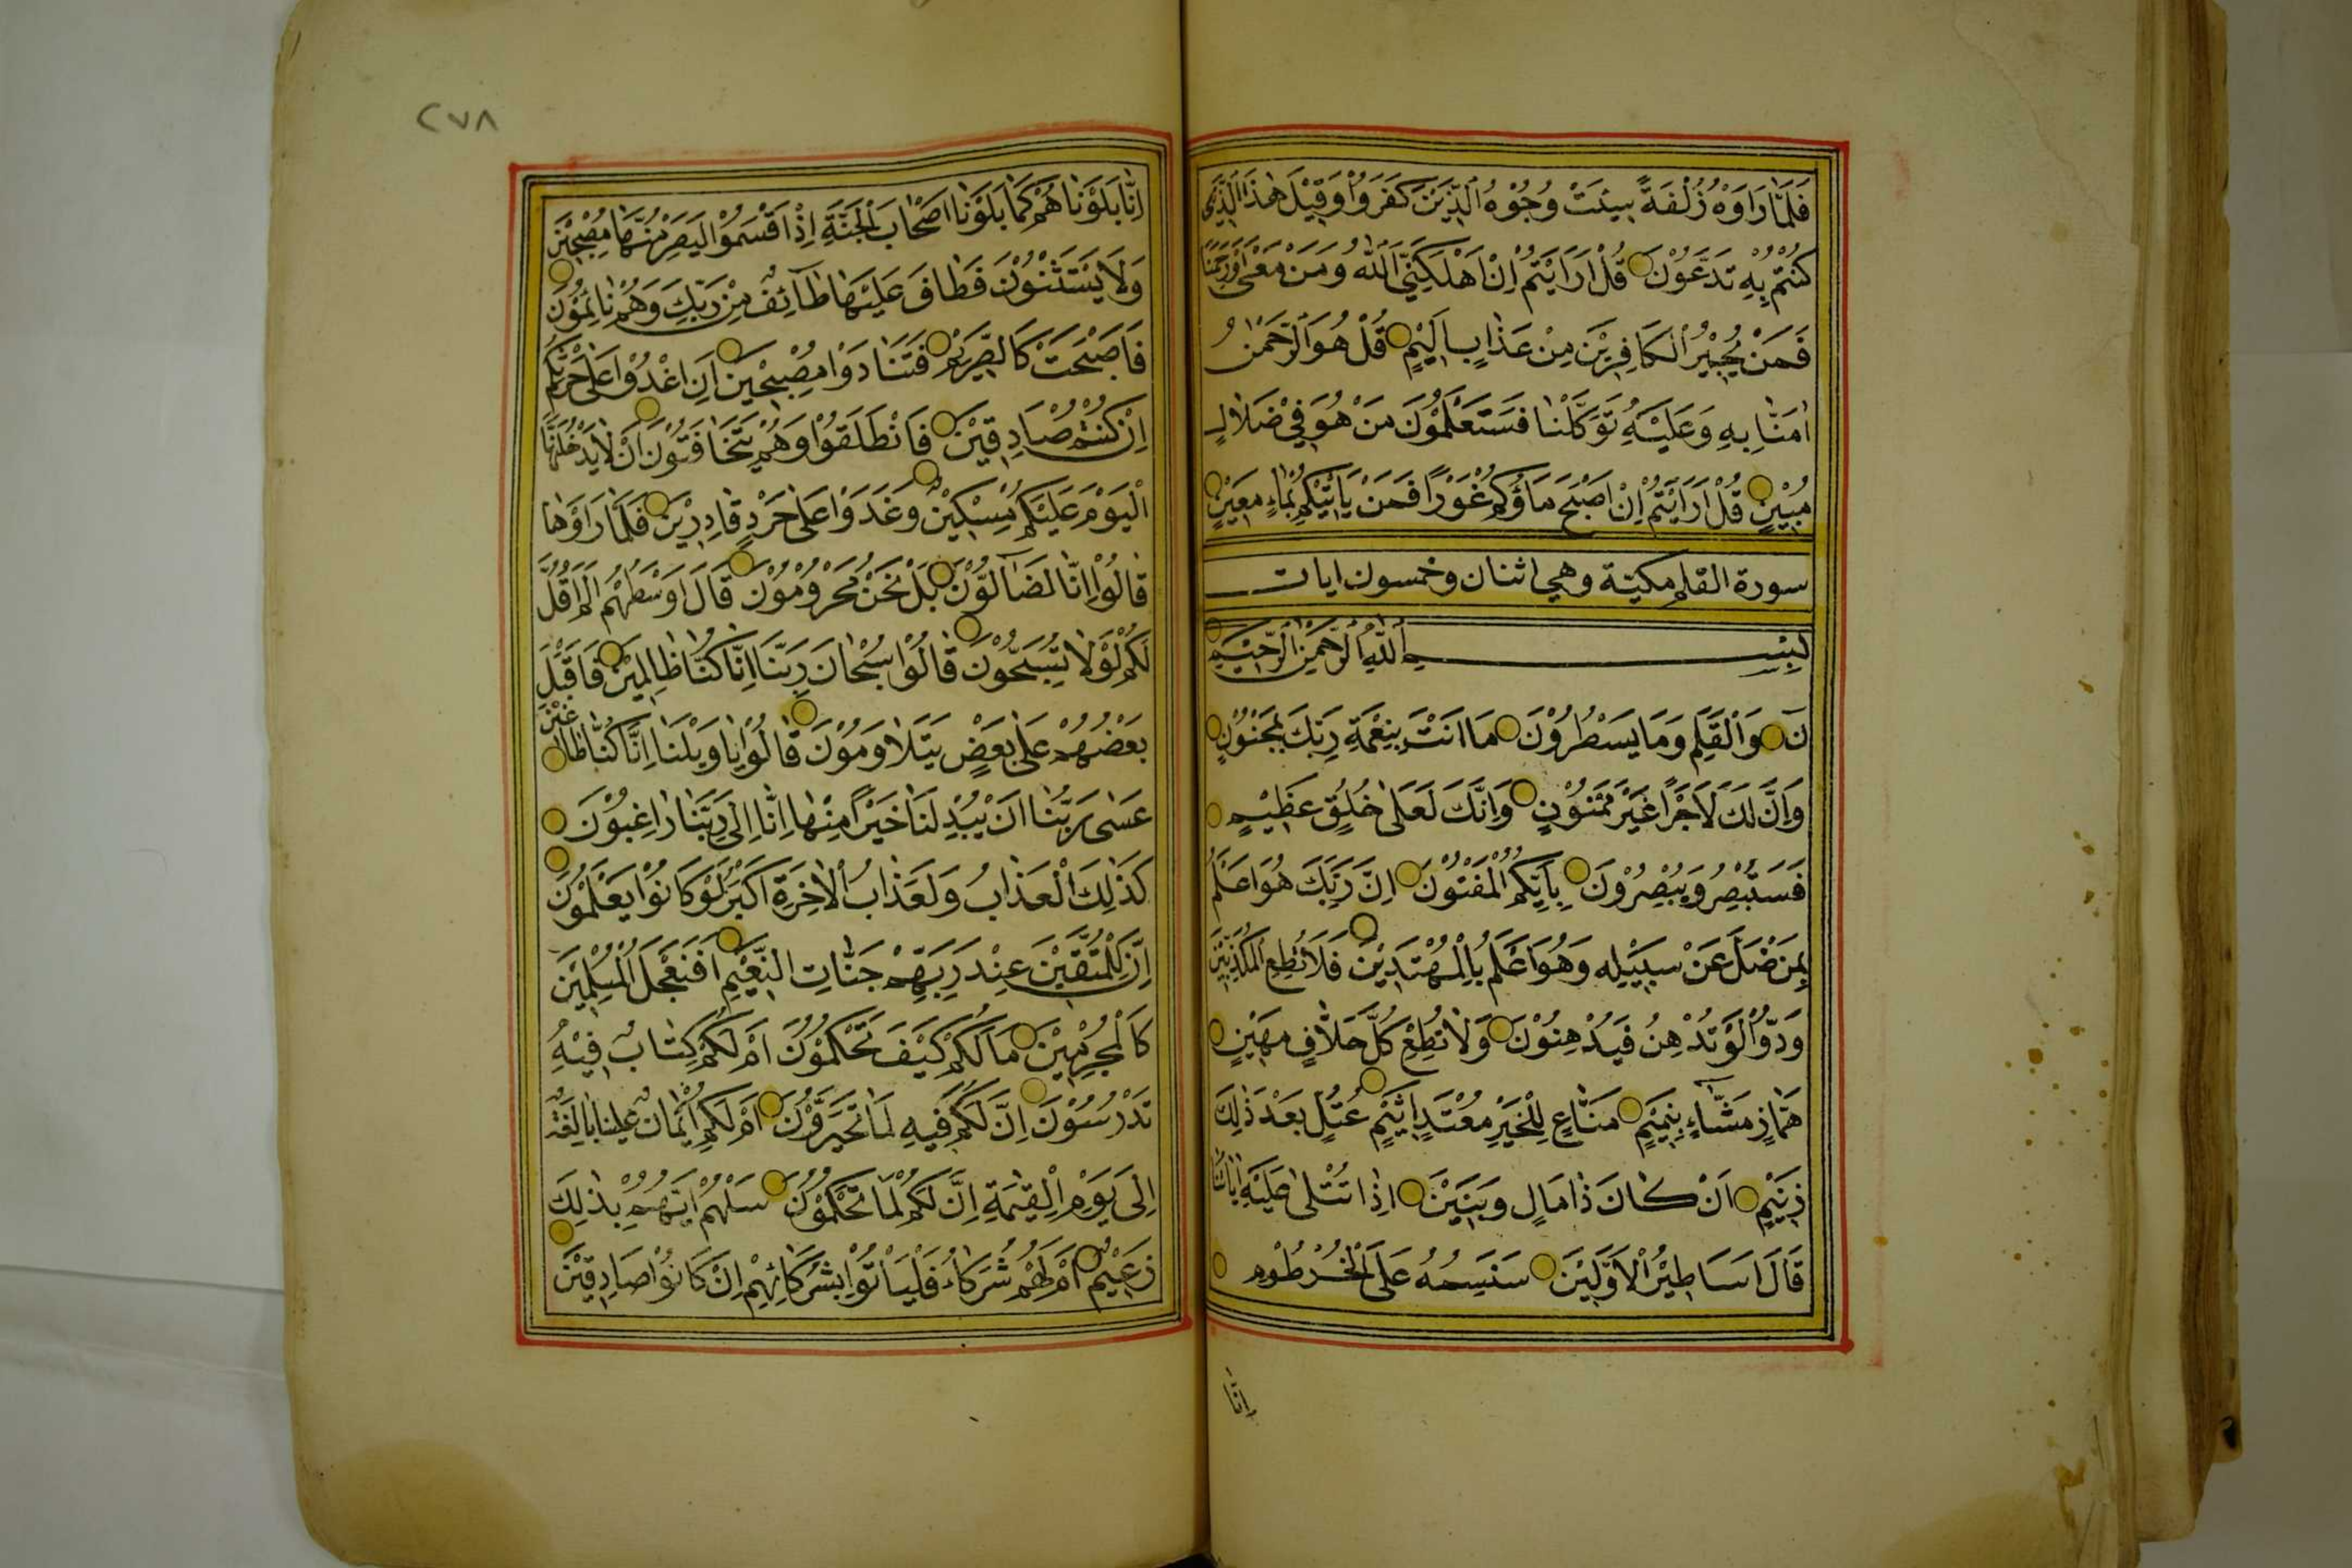 فَلَمَّا رَاَوْهُ زُلْفَةً سِيئَتْ وُجُوْهُ الَّذِيْنَ كَفَرُوْا وَقِيْلَ هٰذَا الَّذِيْ
كُنْتُمْ بِهِ تَدَّعُوْنَ قُلْ اَرَاَيْتُمْ اِنْ اَهْلَكَنِيَ اللّٰهُ وَمَنْ مَعِيَ اَوْ رَحِمَنَا
فَمَنْ يُجِيْرُ الْكَافِرِيْنَ مِنْ عَذَابٍ اَلِيْمٍ قُلْ هُوَ الرَّحْمٰنُ
اٰمَنَّا بِهِ وَعَلَيْهِ تَوَكَّلْنَا فَسَتَعْلَمُوْنَ مَنْ هُوَ فِيْ ضَلَالٍ
مُبِيْنٍ قُلْ اَرَاَيْتُمْ اِنْ اَصْبَحَ مَاؤُكُمْ غَوْرًا فَمَنْ يَاْتِيْكُمْ بِمَاءٍ مَعِيْنٍ
سورة القلم مكية وهي اثنان وخمسون ايات
بِسْمِ اللّٰهِ الرَّحْمٰنِ الرَّحِيْمِ
نٓ وَالْقَلَمِ وَمَا يَسْطُرُوْنَ مَا اَنْتَ بِنِعْمَةِ رَبِّكَ بِمَجْنُوْنٍ
وَاِنَّ لَكَ لَاَجْرًا غَيْرَ مَمْنُوْنٍ وَاِنَّكَ لَعَلٰى خُلُقٍ عَظِيْمٍ
فَسَتُبْصِرُ وَيُبْصِرُوْنَ بِاَيِّكُمُ الْمَفْتُوْنُ اِنَّ رَبَّكَ هُوَ اَعْلَمُ
بِمَنْ ضَلَّ عَنْ سَبِيْلِهِ وَهُوَ اَعْلَمُ بِالْمُهْتَدِيْنَ فَلَا تُطِعِ الْمُكَذِّبِيْنَ
وَدُّوْا لَوْ تُدْهِنُ فَيُدْهِنُوْنَ وَلَا تُطِعْ كُلَّ حَلَّافٍ مَهِيْنٍ
هَمَّازٍ مَشَّاءٍ بِنَمِيْمٍ مَنَّاعٍ لِلْخَيْرِ مُعْتَدٍ اَثِيْمٍ عُتُلٍّ بَعْدَ ذٰلِكَ
زَنِيْمٍ اَنْ كَانَ ذَا مَالٍ وَبَنِيْنَ اِذَا تُتْلٰى عَلَيْهِ اٰيَاتُنَا
قَالَ اَسَاطِيْرُ الْاَوَّلِيْنَ سَنَسِمُهُ عَلَى الْخُرْطُوْمِ
اِنَّا
٢٧٨
اِنَّا بَلَوْنَاهُمْ كَمَا بَلَوْنَا اَصْحَابَ الْجَنَّةِ اِذْ اَقْسَمُوْا لَيَصْرِمُنَّهَا مُصْبِحِيْنَ
وَلَا يَسْتَثْنُوْنَ فَطَافَ عَلَيْهَا طَائِفٌ مِنْ رَبِّكَ وَهُمْ نَائِمُوْنَ
فَاَصْبَحَتْ كَالصَّرِيْمِ فَتَنَادَوْا مُصْبِحِيْنَ اَنِ اغْدُوْا عَلٰى حَرْثِكُمْ
اِنْ كُنْتُمْ صَادِقِيْنَ فَانْطَلَقُوْا وَهُمْ يَتَخَافَتُوْنَ اَنْ لَا يَدْخُلَنَّهَا
الْيَوْمَ عَلَيْكُمْ مِسْكِيْنٌ وَغَدَوْا عَلٰى حَرْدٍ قَادِرِيْنَ فَلَمَّا رَاَوْهَا
قَالُوْا اِنَّا لَضَالُّوْنَ بَلْ نَحْنُ مَحْرُوْمُوْنَ قَالَ اَوْسَطُهُمْ اَلَمْ اَقُلْ
لَكُمْ لَوْلَا تُسَبِّحُوْنَ قَالُوْا سُبْحَانَ رَبِّنَا اِنَّا كُنَّا ظَالِمِيْنَ فَاَقْبَلَ
بَعْضُهُمْ عَلٰى بَعْضٍ يَتَلَاوَمُوْنَ قَالُوْا يَا وَيْلَنَا اِنَّا كُنَّا طَاغِيْنَ
عَسٰى رَبُّنَا اَنْ يُبْدِلَنَا خَيْرًا مِنْهَا اِنَّا اِلٰى رَبِّنَا رَاغِبُوْنَ
كَذٰلِكَ الْعَذَابُ وَلَعَذَابُ الْاٰخِرَةِ اَكْبَرُ لَوْ كَانُوْا يَعْلَمُوْنَ
اِنَّ لِلْمُتَّقِيْنَ عِنْدَ رَبِّهِمْ جَنَّاتِ النَّعِيْمِ اَفَنَجْعَلُ الْمُسْلِمِيْنَ
كَالْمُجْرِمِيْنَ مَا لَكُمْ كَيْفَ تَحْكُمُوْنَ اَمْ لَكُمْ كِتَابٌ فِيْهِ
تَدْرُسُوْنَ اِنَّ لَكُمْ فِيْهِ لَمَا تَخَيَّرُوْنَ اَمْ لَكُمْ اَيْمَانٌ عَلَيْنَا بَالِغَةٌ
اِلٰى يَوْمِ الْقِيٰمَةِ اِنَّ لَكُمْ لَمَا تَحْكُمُوْنَ سَلْهُمْ اَيُّهُمْ بِذٰلِكَ
زَعِيْمٌ اَمْ لَهُمْ شُرَكَاءُ فَلْيَاْتُوْا بِشُرَكَائِهِمْ اِنْ كَانُوْا صَادِقِيْنَ